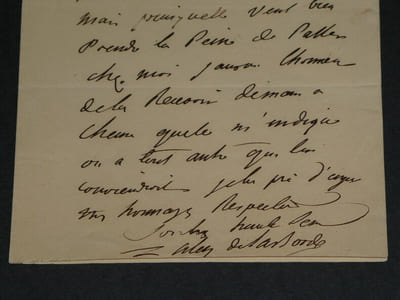 mais puisqu'elle veut bien
Prendre la Peine de Passer
chez moi j'aurai l'honneur
de la Recevoir demain a
l'heure quelle m'indique
ou a tout autre qui lui
conviendroit je la prie d'agreer
mes hommages Respectueux